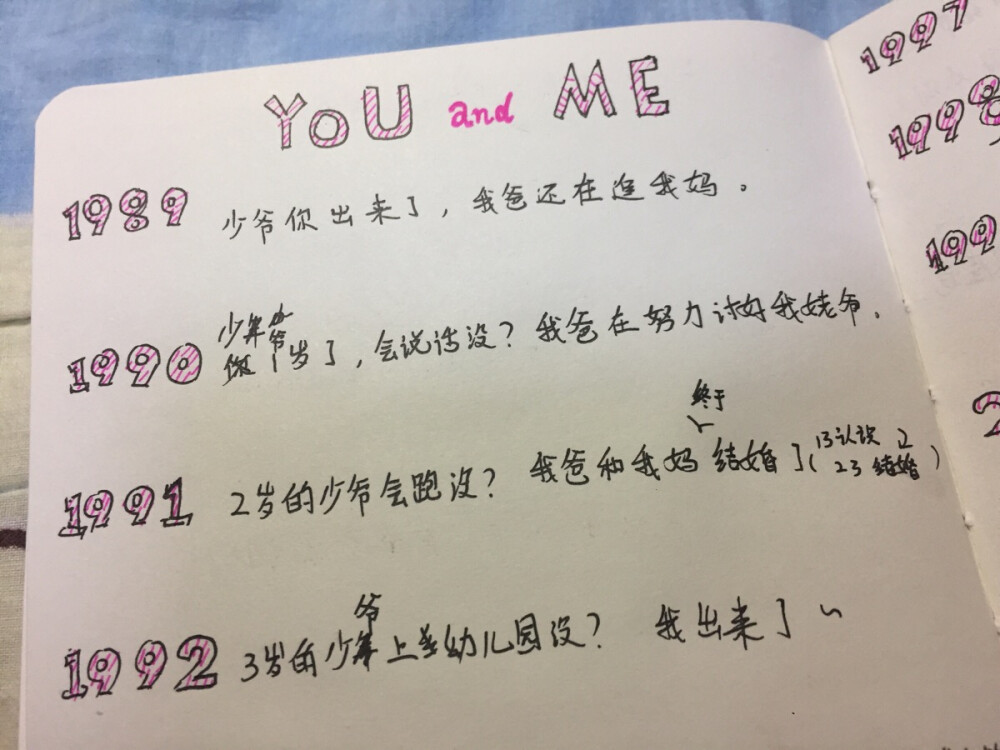 YOU and ME
1989 少爷你出来了，我爸还在追我妈。
少爷
1990 你1岁了，会说话没？我爸在努力讨好我姥爷.
终于
1991 2岁的少爷会跑没？ 我爸和我妈结婚了(13认识
23结婚)
爷
1992 3岁的少上幼儿园没？ 我出来了~
1997
199
199
2